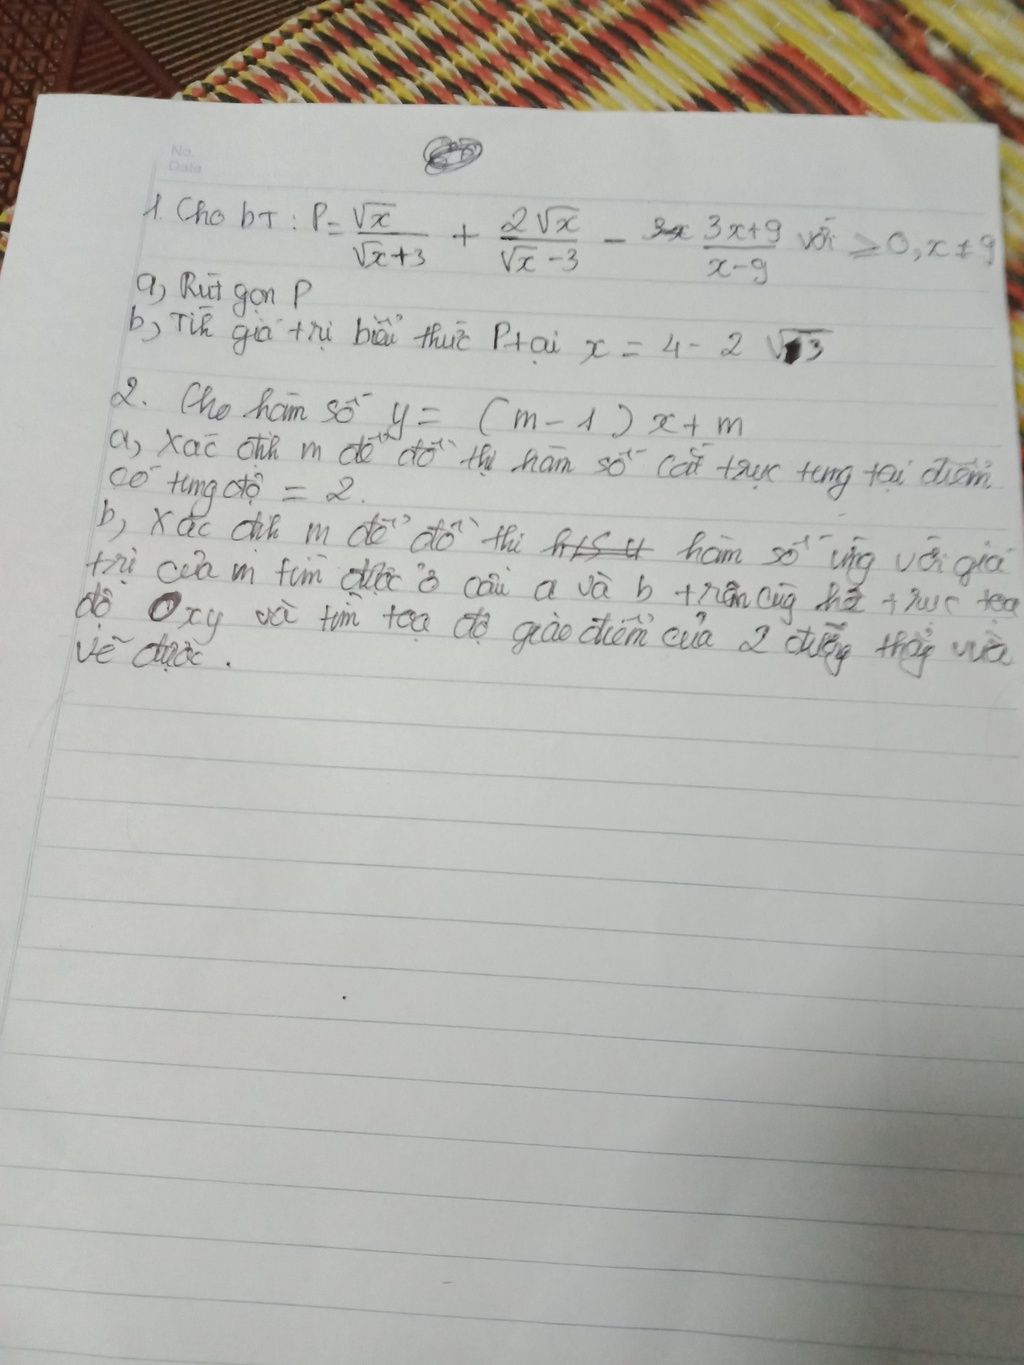 No.
Date
1. Cho bT: P = √x/(√x+3) + 2√x/(√x-3) - (3x+9)/(x-9) với ≥ 0, x ≠ 9
a, Rút gọn P
b, Tíh giá trị biểu thức P tại x = 4 - 2 √3
2. Cho hàm số y = (m-1)x+m
a, Xác địh m để đồ thị hàm số cắt trục tung tại điểm
có tung độ = 2.
b, Xác địh m để đồ thị hàm số ứng với giá
trị của m tìm được ở câu a và b trên cùg hệ trục tọa
độ Oxy và tìm tọa độ giao điểm của 2 đườg thẳg vừa
vẽ được.